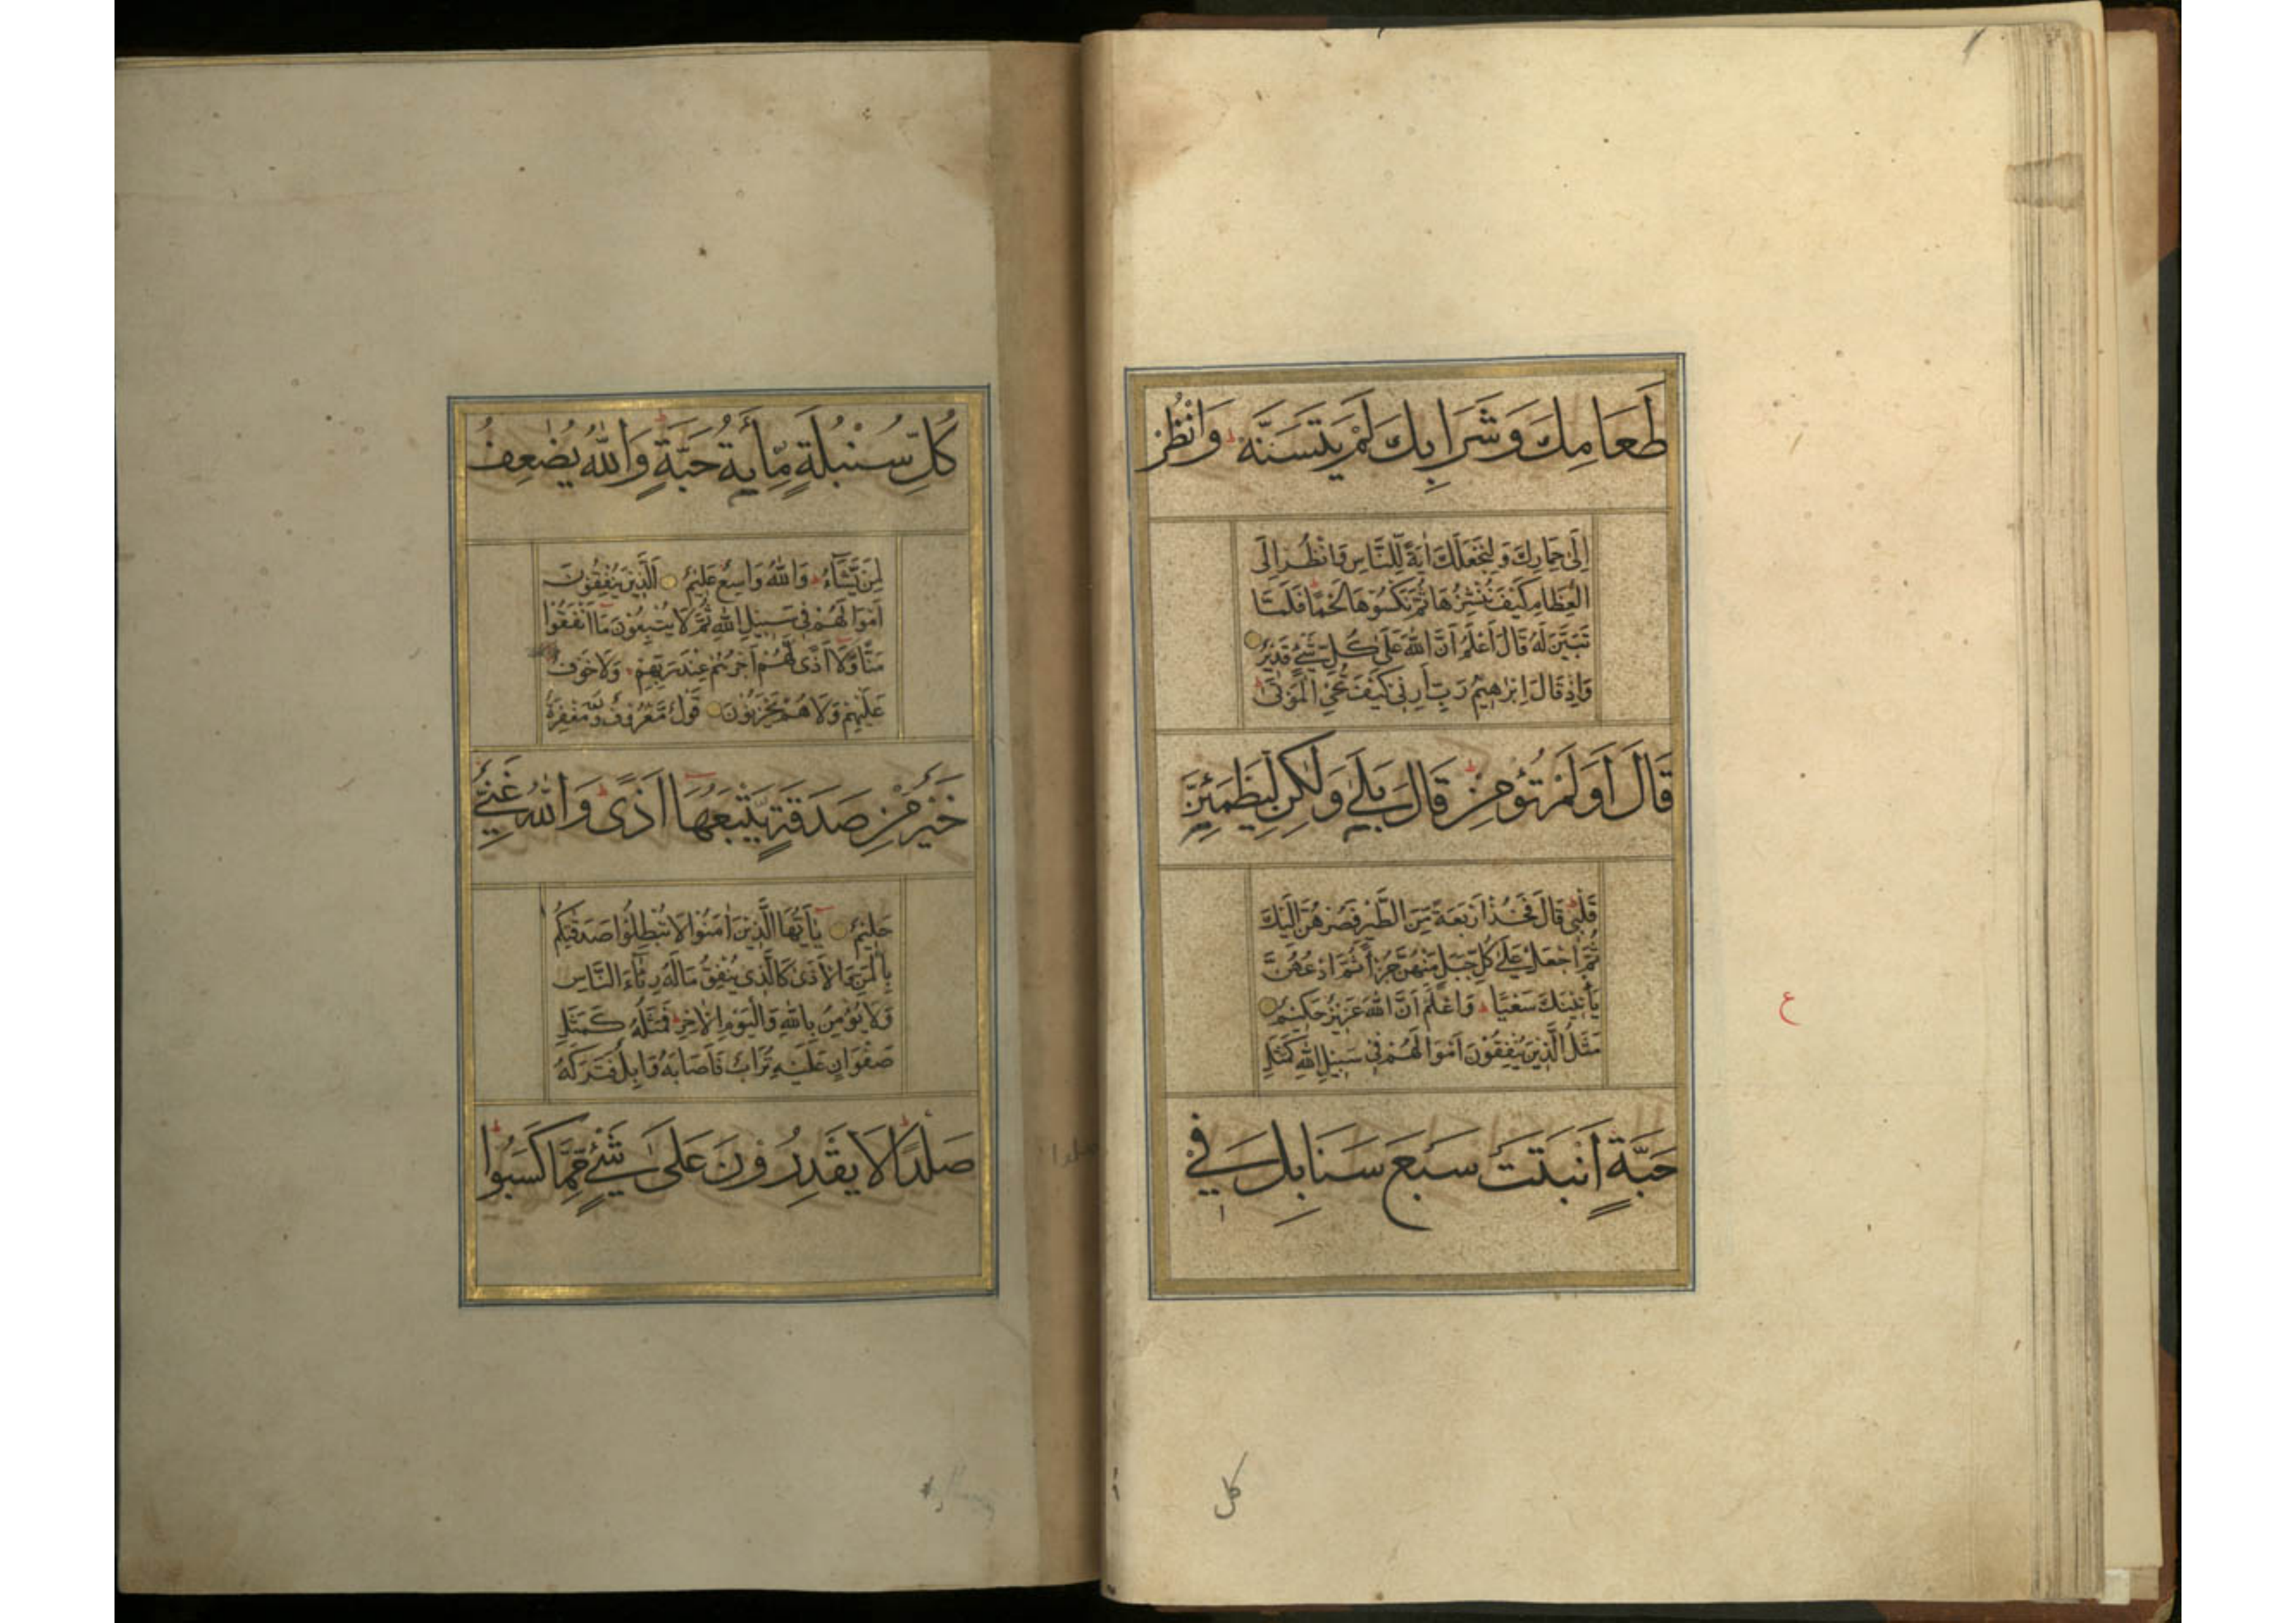 طَعَامِكَ وَشَرَابِكَ لَمْ يَتَسَنَّهْ ۚ وَانْظُرْ
اِلَى حِمَارِكَ وَلِنَجْعَلَكَ اٰيَةً لِلنَّاسِ وَانْظُرْ اِلَى
الْعِظَامِ كَيْفَ نُنْشِزُهَا ثُمَّ نَكْسُوْهَا لَحْمًا فَلَمَّا
تَبَيَّنَ لَهُ قَالَ اَعْلَمُ اَنَّ اللّٰهَ عَلٰى كُلِّ شَيْءٍ قَدِيْرٌ
وَاِذْ قَالَ اِبْرٰهِيْمُ رَبِّ اَرِنِيْ كَيْفَ تُحْيِ الْمَوْتٰى
قَالَ اَوَلَمْ تُؤْمِنْ قَالَ بَلٰى وَلٰكِنْ لِيَطْمَئِنَّ
قَلْبِيْ قَالَ فَخُذْ اَرْبَعَةً مِنَ الطَّيْرِ فَصُرْهُنَّ اِلَيْكَ
ثُمَّ اجْعَلْ عَلٰى كُلِّ جَبَلٍ مِنْهُنَّ جُزْأً ثُمَّ ادْعُهُنَّ
يَأْتِيْنَكَ سَعْيًا وَاعْلَمْ اَنَّ اللّٰهَ عَزِيْزٌ حَكِيْمٌ
ع
مَثَلُ الَّذِيْنَ يُنْفِقُوْنَ اَمْوَالَهُمْ فِيْ سَبِيْلِ اللّٰهِ كَمَثَلِ
حَبَّةٍ اَنْبَتَتْ سَبْعَ سَنَابِلَ فِيْ
كل
كُلِّ سُنْبُلَةٍ مِّايَةُ حَبَّةٍ وَاللّٰهُ يُضٰعِفُ
لِمَنْ يَّشَآءُ وَاللّٰهُ وَاسِعٌ عَلِيْمٌ اَلَّذِيْنَ يُنْفِقُوْنَ
اَمْوَالَهُمْ فِيْ سَبِيْلِ اللّٰهِ ثُمَّ لَا يُتْبِعُوْنَ مَا اَنْفَقُوْا
مَنًّا وَّلَا اَذًى لَّهُمْ اَجْرُهُمْ عِنْدَ رَبِّهِمْ وَلَا خَوْفٌ
عَلَيْهِمْ وَلَا هُمْ يَحْزَنُوْنَ قَوْلٌ مَّعْرُوْفٌ وَّمَغْفِرَةٌ
خَيْرٌ مِّنْ صَدَقَةٍ يَّتْبَعُهَا اَذًى وَاللّٰهُ غَنِيٌّ
حَلِيْمٌ يٰٓاَيُّهَا الَّذِيْنَ اٰمَنُوْا لَا تُبْطِلُوْا صَدَقٰتِكُمْ
بِالْمَنِّ وَالْاَذٰى كَالَّذِيْ يُنْفِقُ مَالَهُ رِئَآءَ النَّاسِ
وَلَا يُؤْمِنُ بِاللّٰهِ وَالْيَوْمِ الْاٰخِرِ فَمَثَلُهُ كَمَثَلِ
صَفْوَانٍ عَلَيْهِ تُرَابٌ فَاَصَابَهُ وَابِلٌ فَتَرَكَهُ
صَلْدًا لَا يَقْدِرُوْنَ عَلٰى شَيْءٍ مِّمَّا كَسَبُوْا